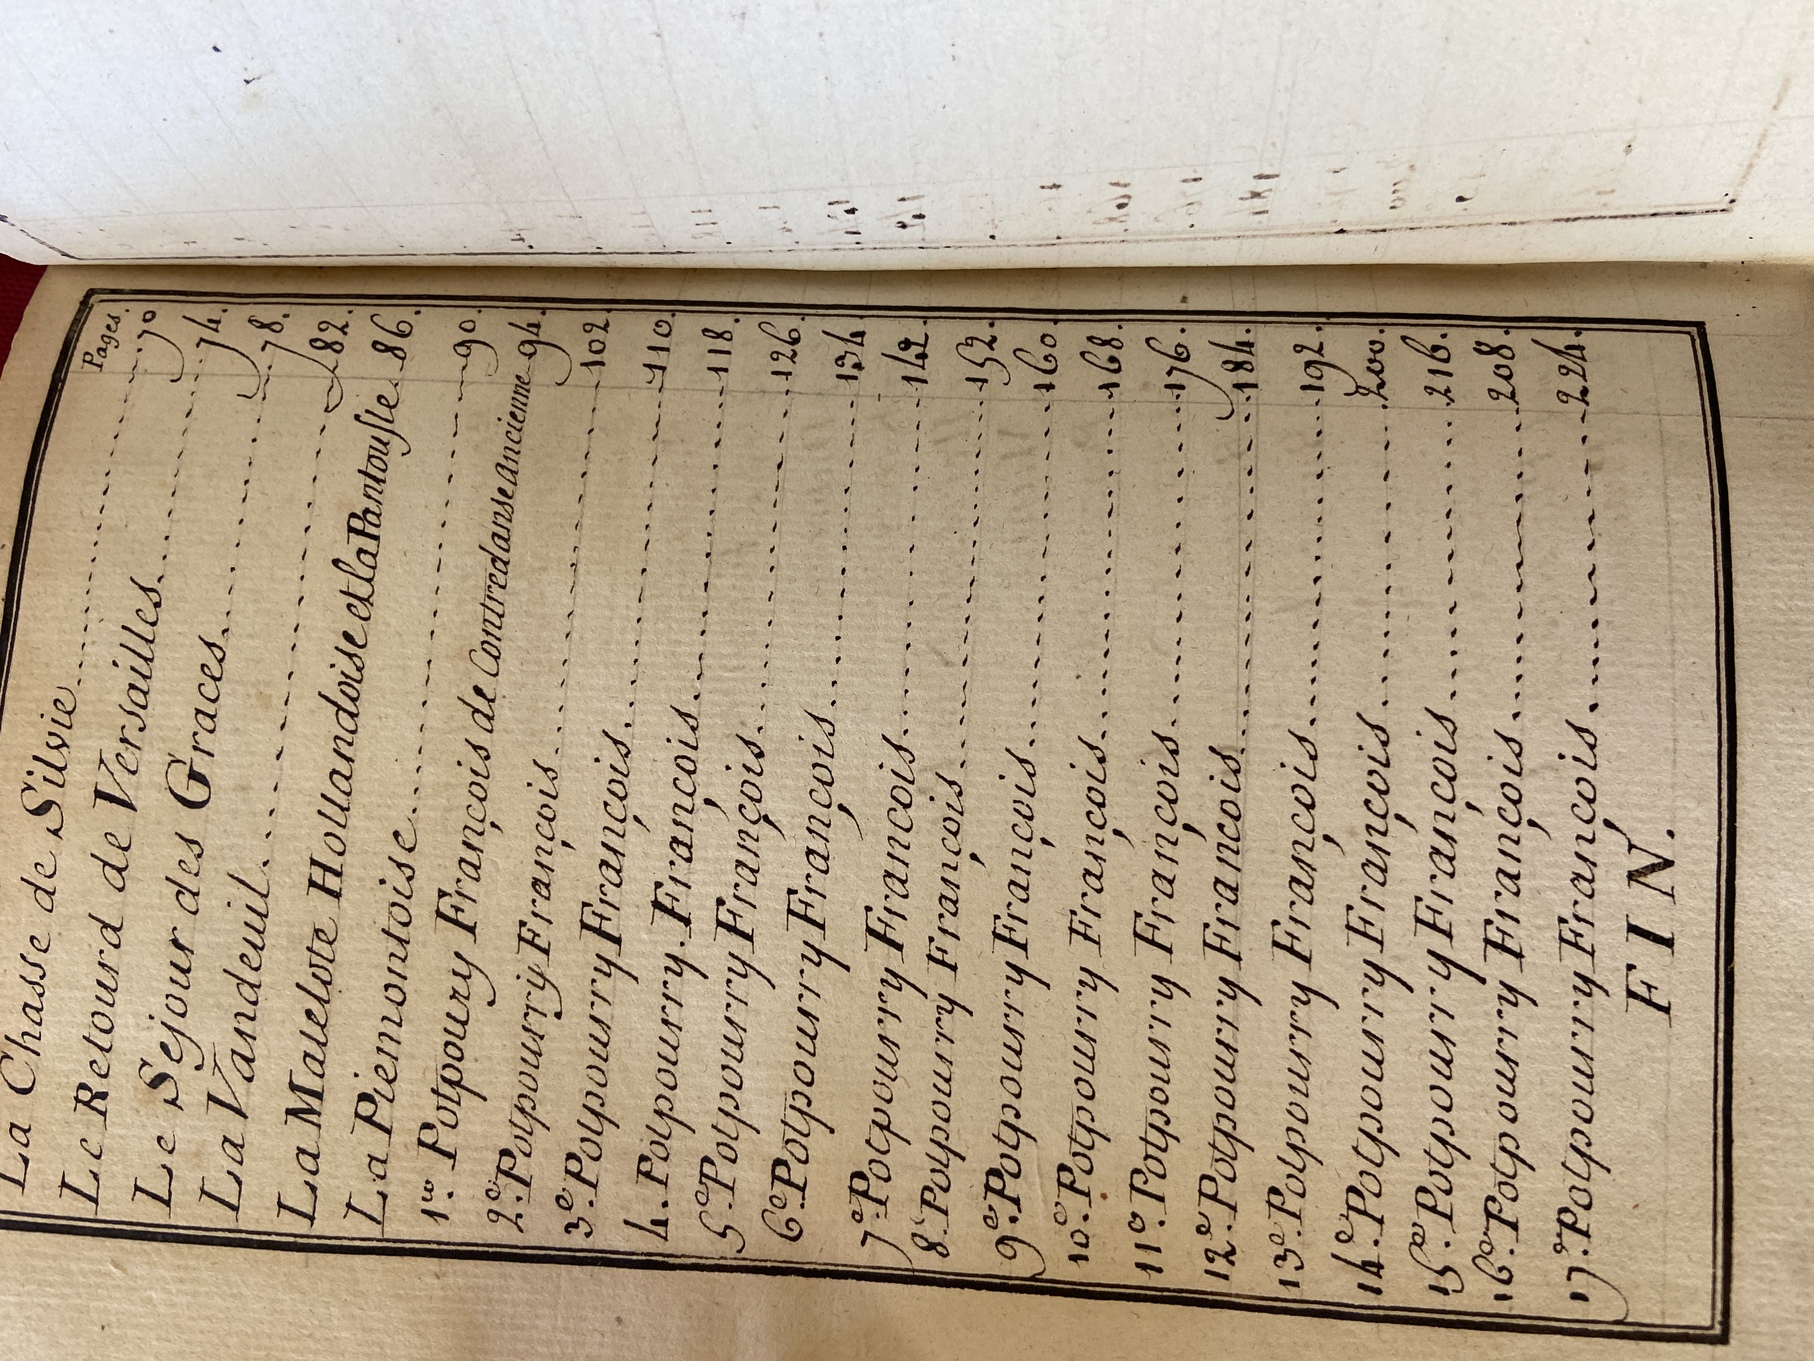 Pages.
La Chasse de Silvie 70
Le Retourd de Versailles 74.
Le Sejour des Graces 78.
La Vandeuil 82.
La Matelote Hollandoise et la Pantousle 86.
La Piemontoise 90.
1er. Potpoury François de Contredanse Ancienne 94.
2e. Potpourry François 102.
3e. Potpourry François 110.
4. Potpourry François 118.
5e Potpourry François 126.
6e. Potpourry François 134
7e. Potpourry Francois 142.
8e Potpourry François 152.
9e. Potpourry François 160.
10e. Potpourry François 168.
11e. Potpourry François 176.
12e. Potpourry Francois 184.
13e. Potpourry François 192.
14e. Potpourry François 200.
15e. Potpourry François 216.
16e. Potpourry François 208.
17e. Potpourry François 224.
FIN.